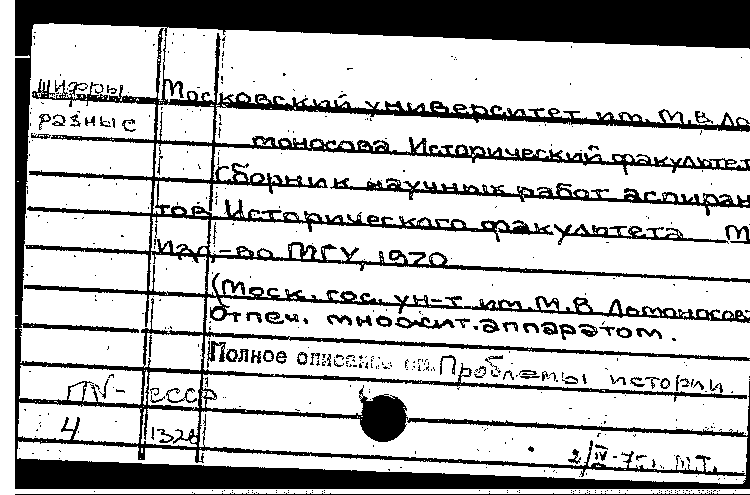 шифры Московский университет им. М.В Ло
разные моносова. Исторический факультет
Сборник научных работ аспиран
тов Исторического факультета М
Изд-во МГУ, 1970
(Моск. гос. ун-т им. М.В Ломоносова
Отпеч. множит. аппаратом.
Полное описание см. Проблемы истории
СССР
4 1328
2/IV-75г. М.Т.